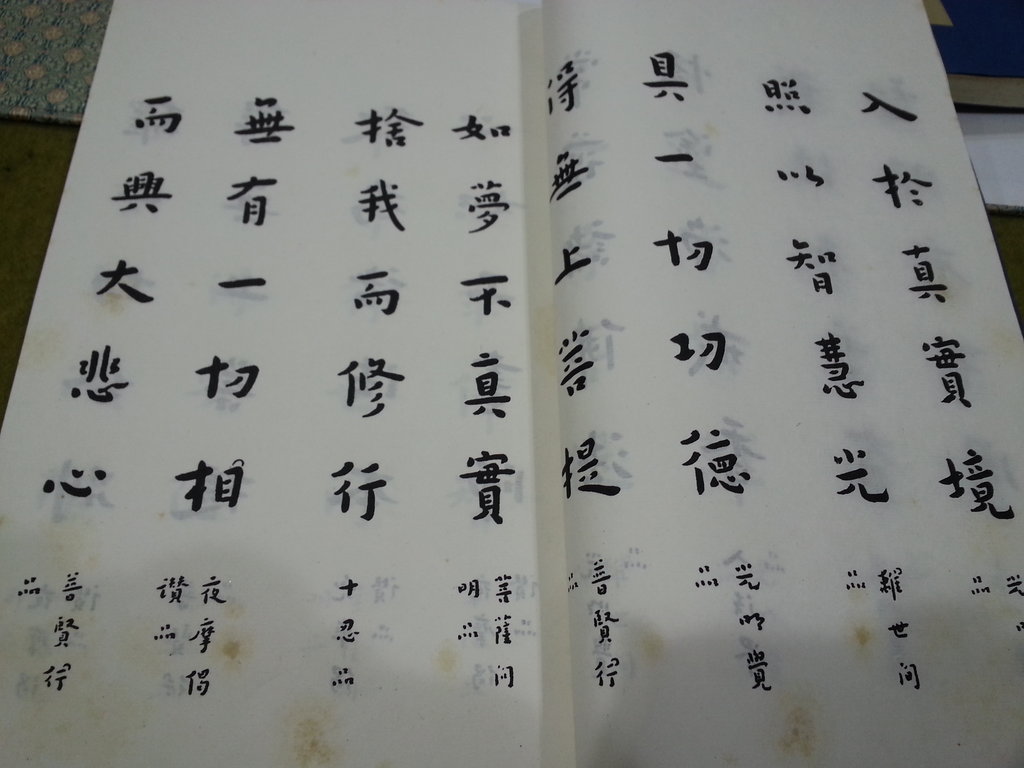 入於真實境
光明
品
照以智慧光
離世間
品
具一切功德
光明覺
品
得無上菩提
普賢行
品
如夢不真實
菩薩問
明品
捨我而修行
十忍品
無有一切相
夜摩偈
讚品
而興大悲心
普賢行
品